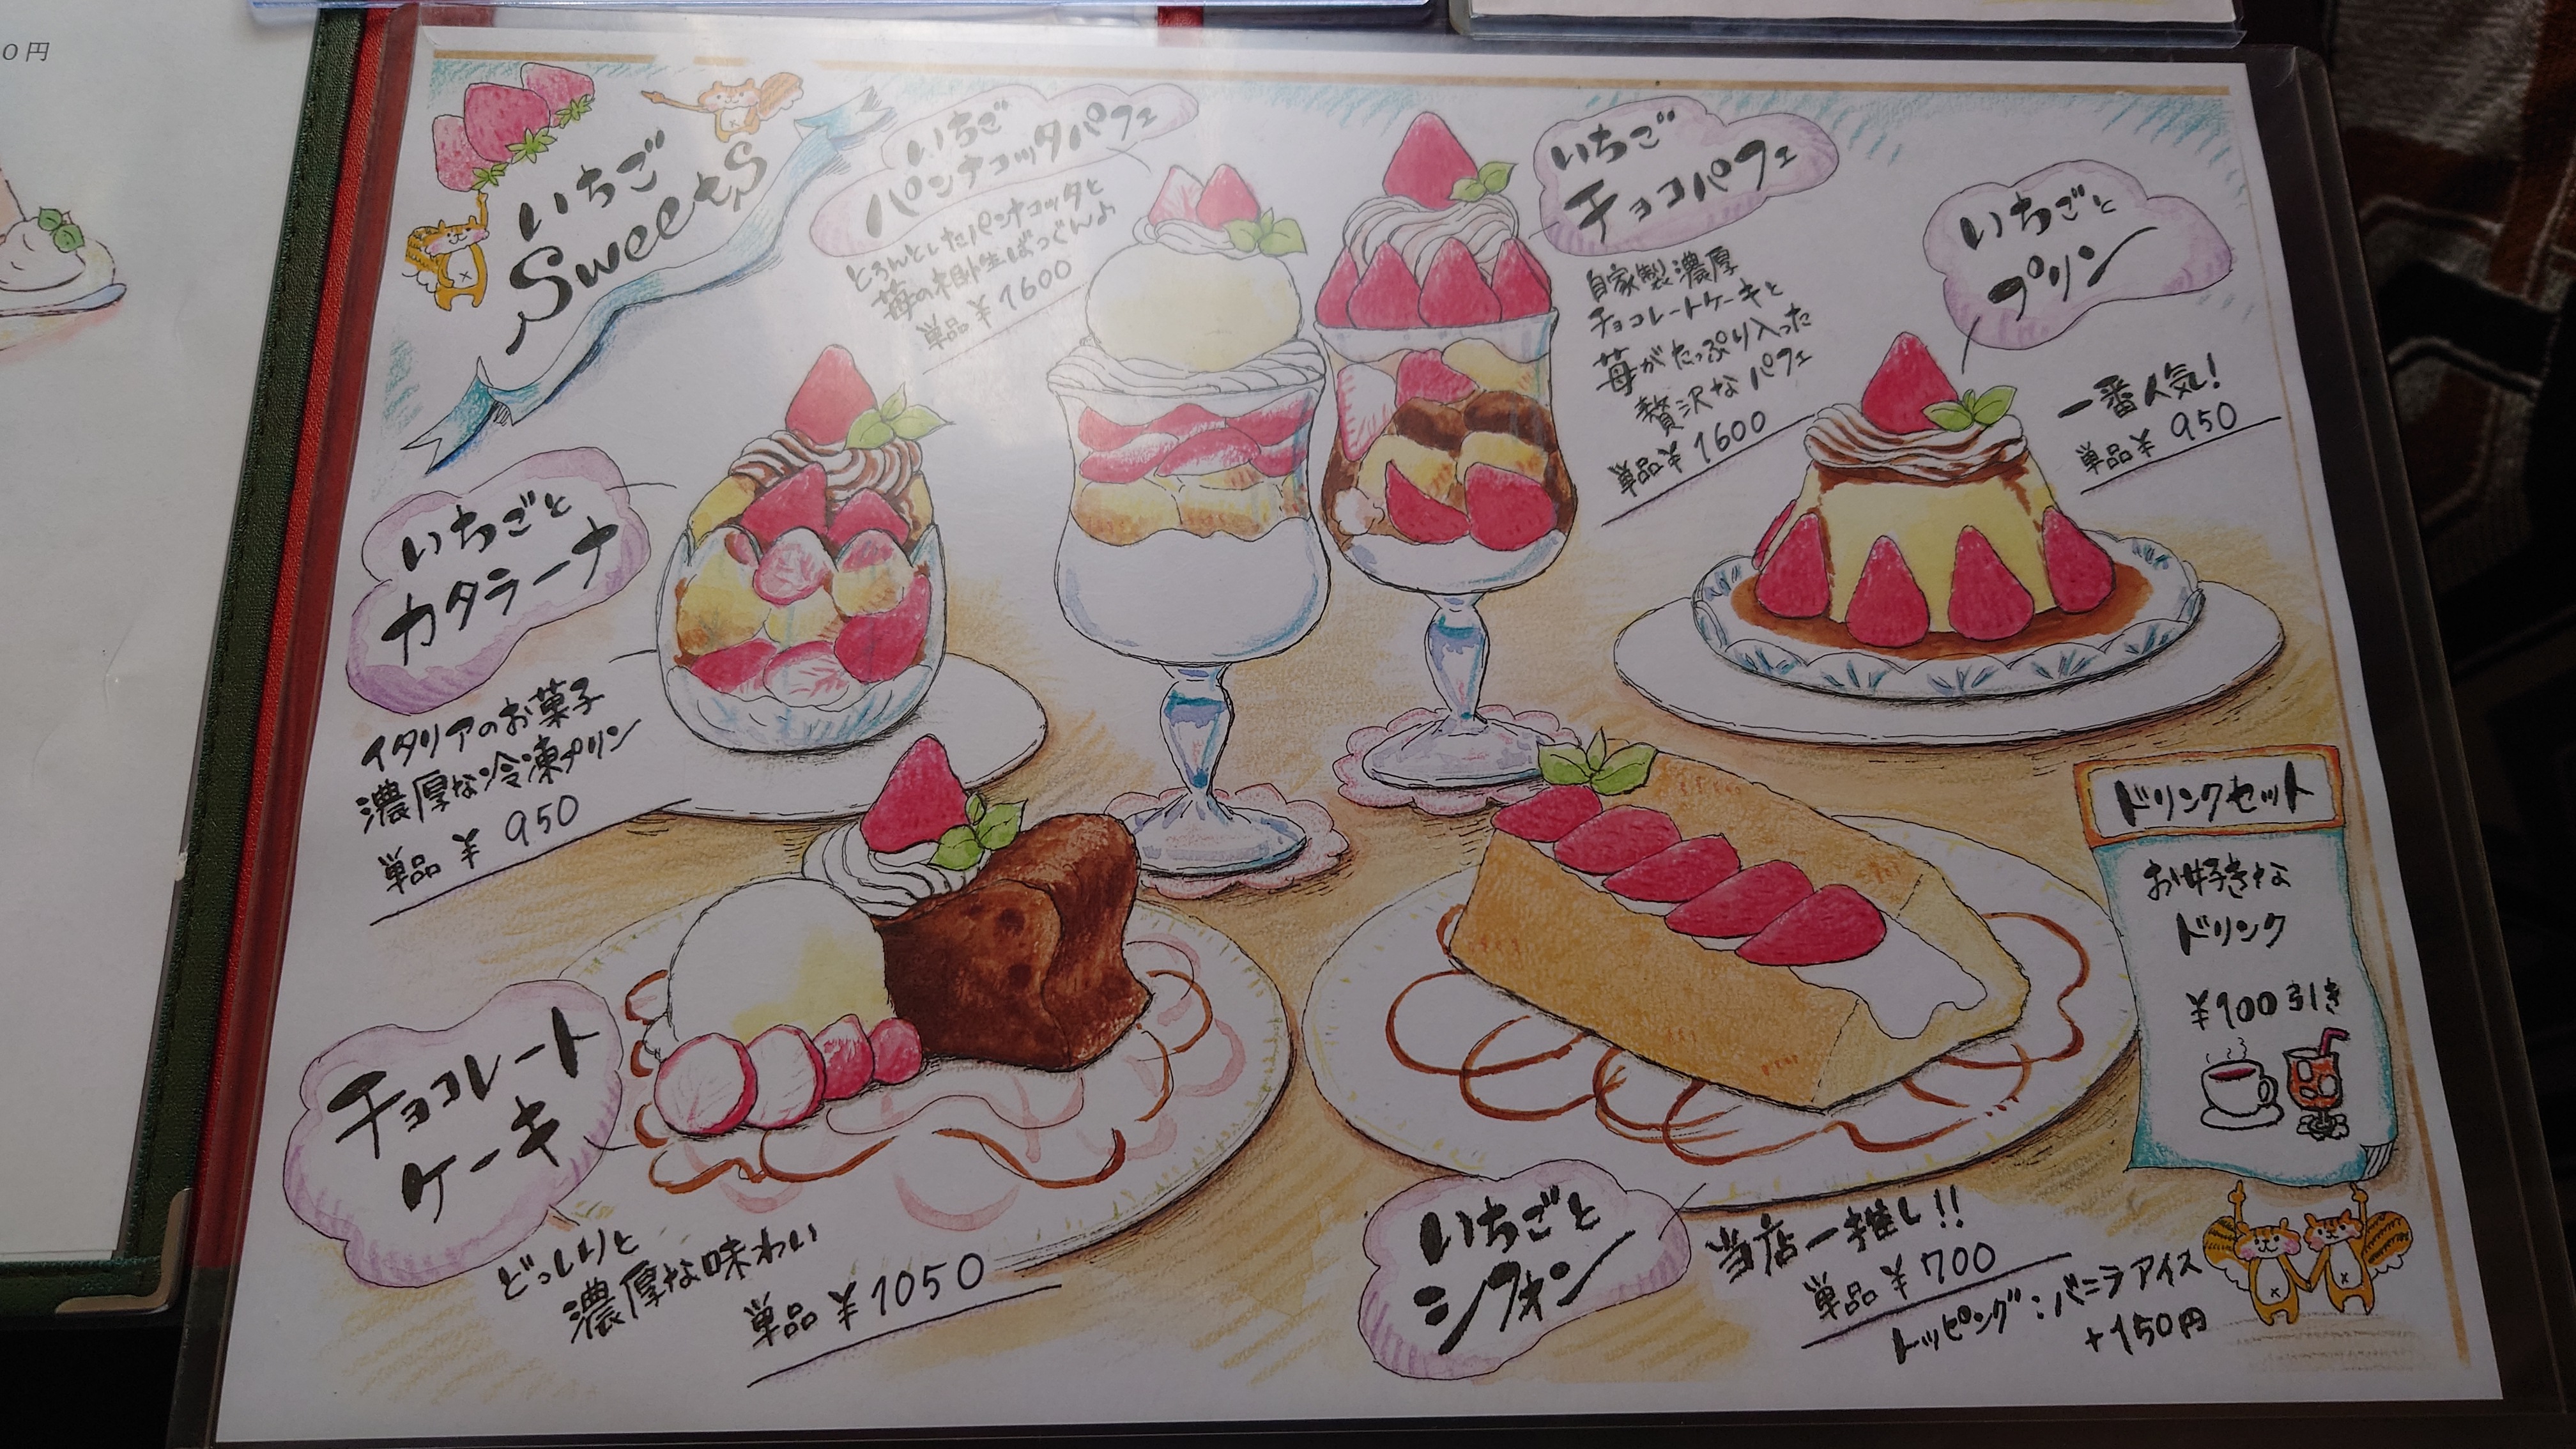 0円
いちご
Sweets
いちご
パンナコッタパフェ
とろんとしたパンナコッタと
苺の相性ばつぐんよ
単品 ¥1600
いちご
チョコパフェ
自家製濃厚
チョコレートケーキと
苺がたっぷり入った
贅沢なパフェ
単品¥1600
いちごと
プリン
一番人気!
単品¥950
いちごと
カタラーナ
イタリアのお菓子
濃厚な冷凍プリン
単品 ¥950
チョコレート
ケーキ
どっしりと
濃厚な味わい
単品 ¥1050
いちごと
シフォン
当店一推し!!
単品 ¥700
トッピング:バニラアイス
+150円
ドリンクセット
お好きな
ドリンク
¥100引き